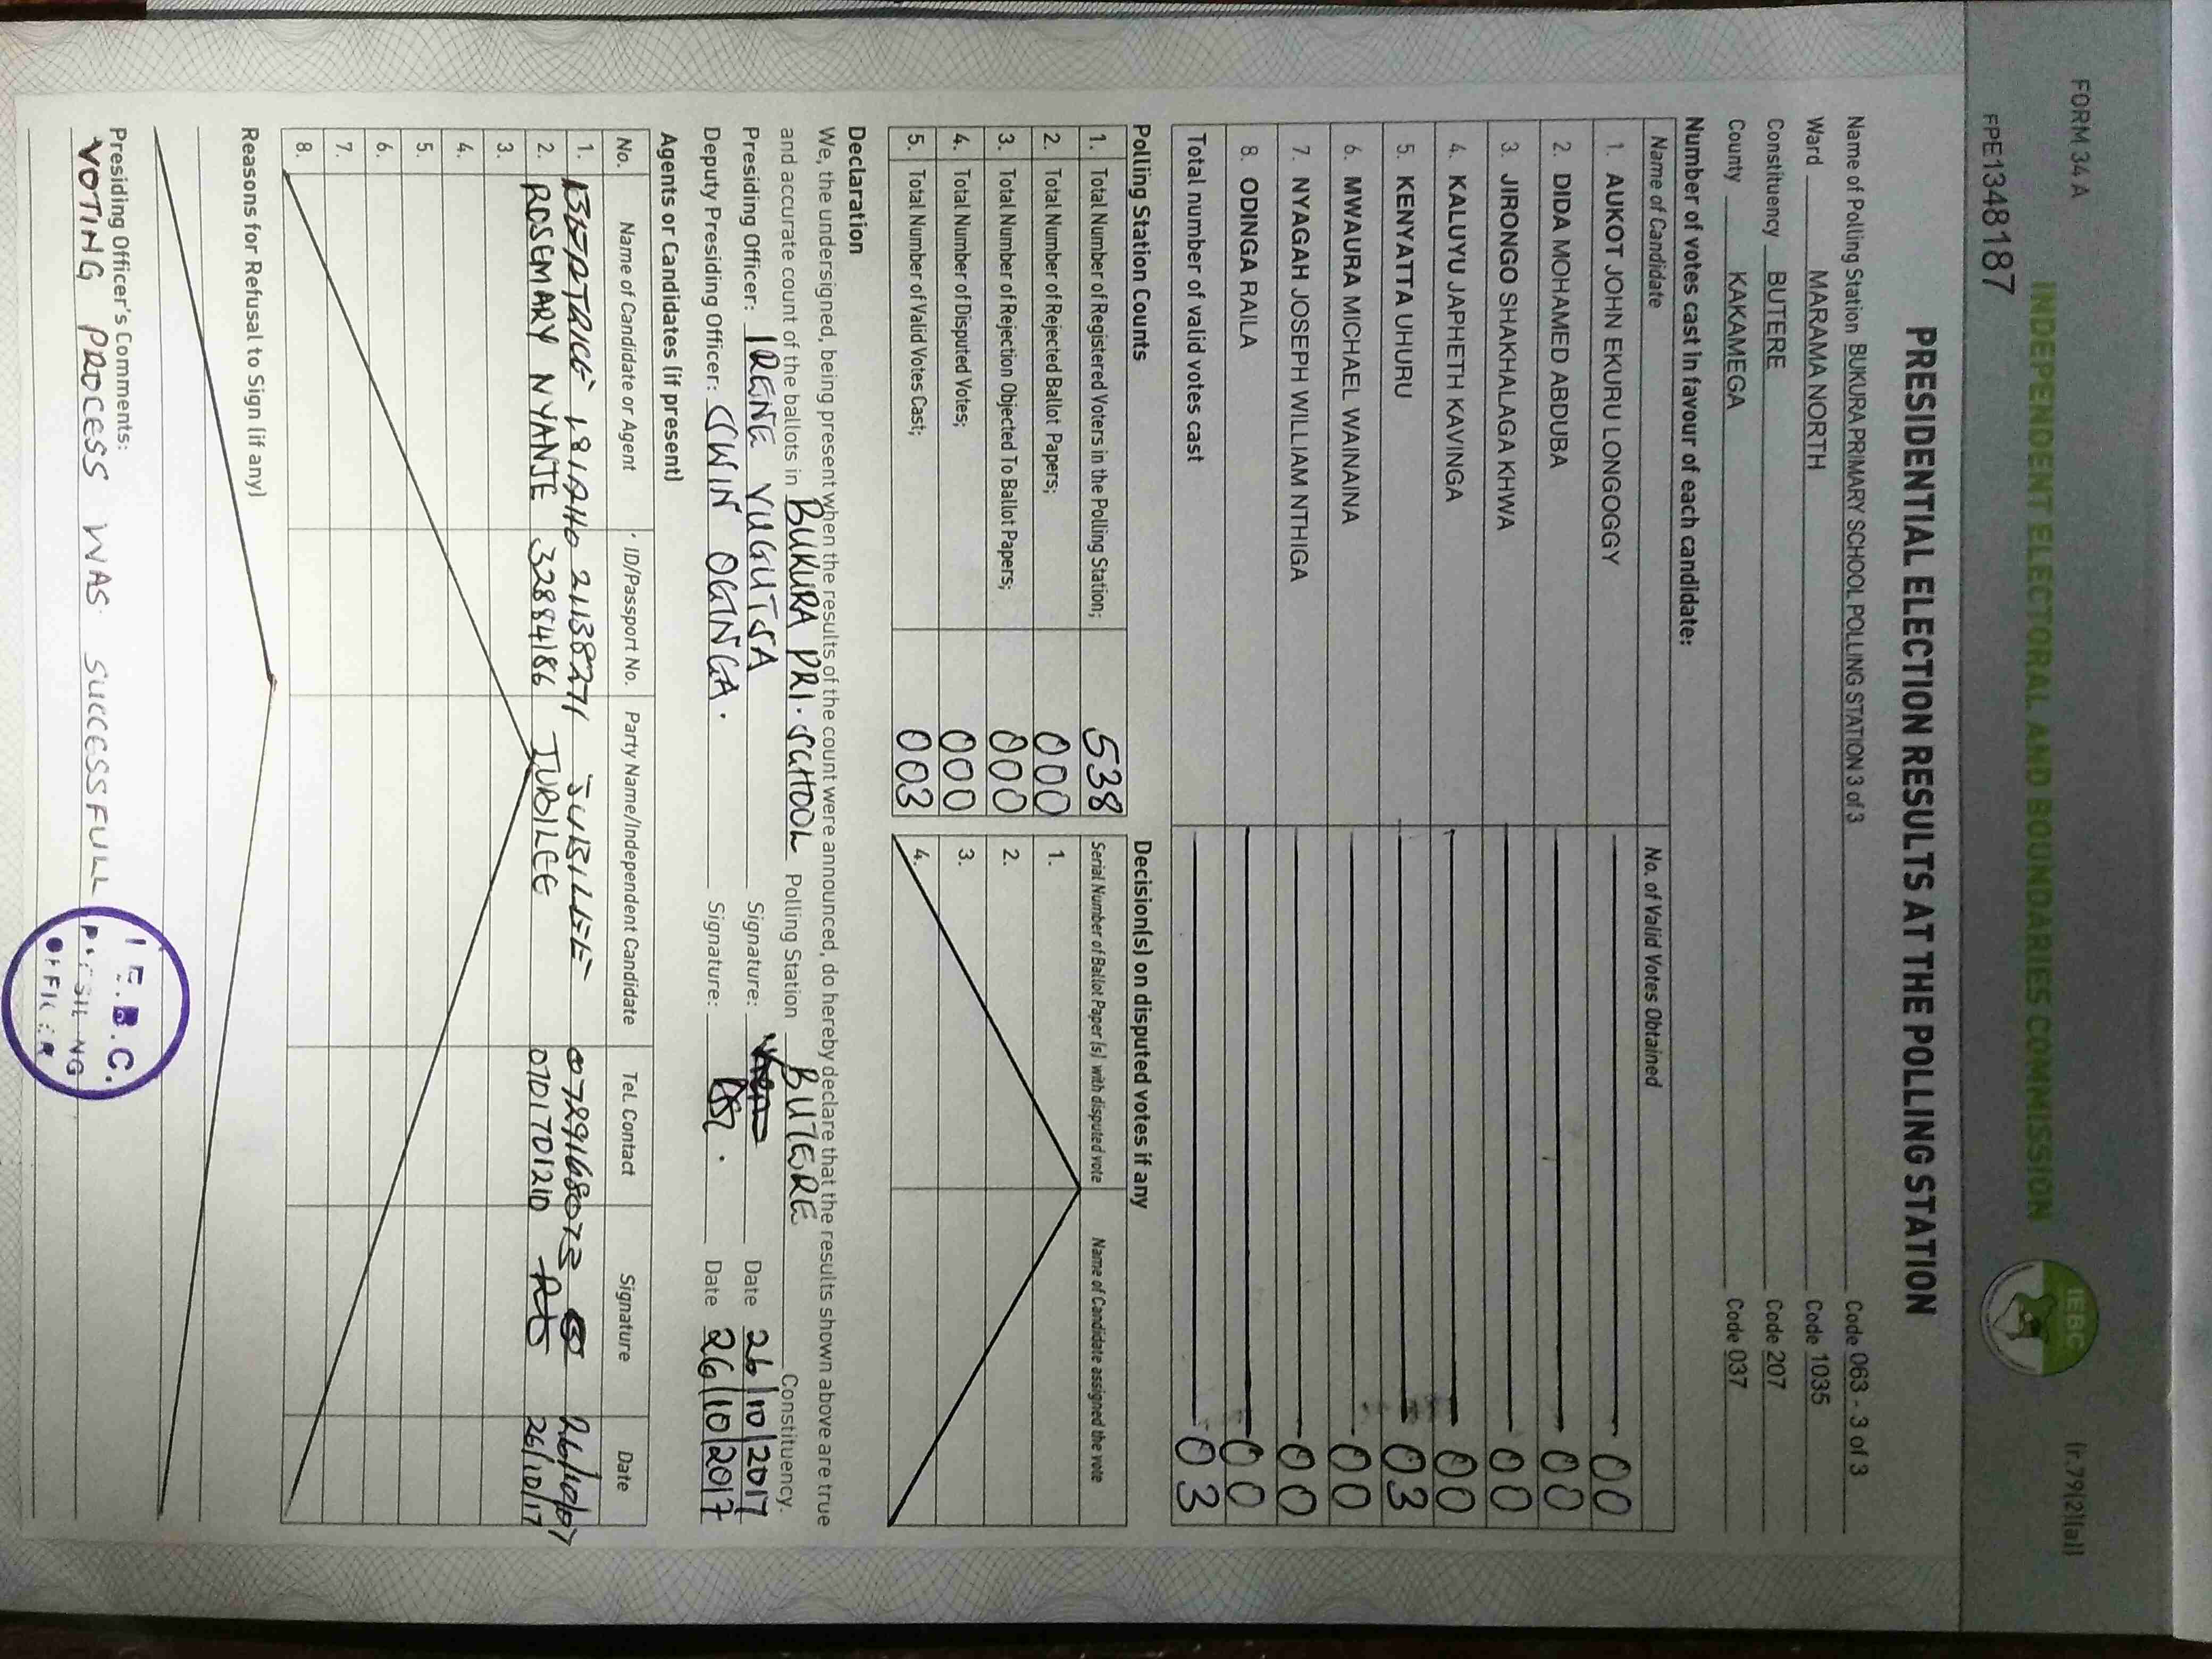 FORM 34 A
INDEPENDENT ELECTORAL AND BOUNDARIES COMMISSION
IEBC
(r.79(2)(a))
FPE1348187
PRESIDENTIAL ELECTION RESULTS AT THE POLLING STATION
Name of Polling Station BUKURA PRIMARY SCHOOL POLLING STATION 3 of 3 Code 063 - 3 of 3
Ward MARAMA NORTH Code 1035
Constituency BUTERE Code 207
County KAKAMEGA Code 037
Number of votes cast in favour of each candidate:
Name of Candidate No. of Valid Votes Obtained
1. AUKOT JOHN EKURU LONGOGGY 00
2. DIDA MOHAMED ABDUBA 00
3. JIRONGO SHAKHALAGA KHWA 00
4. KALUYU JAPHETH KAVINGA 00
5. KENYATTA UHURU 03
6. MWAURA MICHAEL WAINAINA 00
7. NYAGAH JOSEPH WILLIAM NTHIGA 00
8. ODINGA RAILA 00
Total number of valid votes cast 03
Polling Station Counts
1. Total Number of Registered Voters in the Polling Station; 538
2. Total Number of Rejected Ballot Papers; 000
3. Total Number of Rejection Objected To Ballot Papers; 000
4. Total Number of Disputed Votes; 000
5. Total Number of Valid Votes Cast; 003
Decision(s) on disputed votes if any
Serial Number of Ballot Paper (s) with disputed vote Name of Candidate assigned the vote
1.
2.
3.
4.
Declaration
We, the undersigned, being present when the results of the count were announced, do hereby declare that the results shown above are true
and accurate count of the ballots in BUKURA PRI. SCHOOL Polling Station BUTERE Constituency.
Presiding Officer: IRENE VUGUTSA Signature: Date 26/10/2017
Deputy Presiding Officer: OGINGA. Signature: Date 26/10/2017
Agents or Candidates (if present)
No. Name of Candidate or Agent ID/Passport No. Party Name/Independent Candidate Tel. Contact Signature Date
1. 21138271 JUBILEE 0729168073
2. ROSEMARY NYANJE 32884186 JUBILEE 0701701210 26/10/17
3.
4.
5.
6.
7.
8.
Reasons for Refusal to Sign (if any)
Presiding Officer's Comments:
VOTING PROCESS WAS SUCCESSFULL
I.E.B.C.
PRESIDING
OFFICER